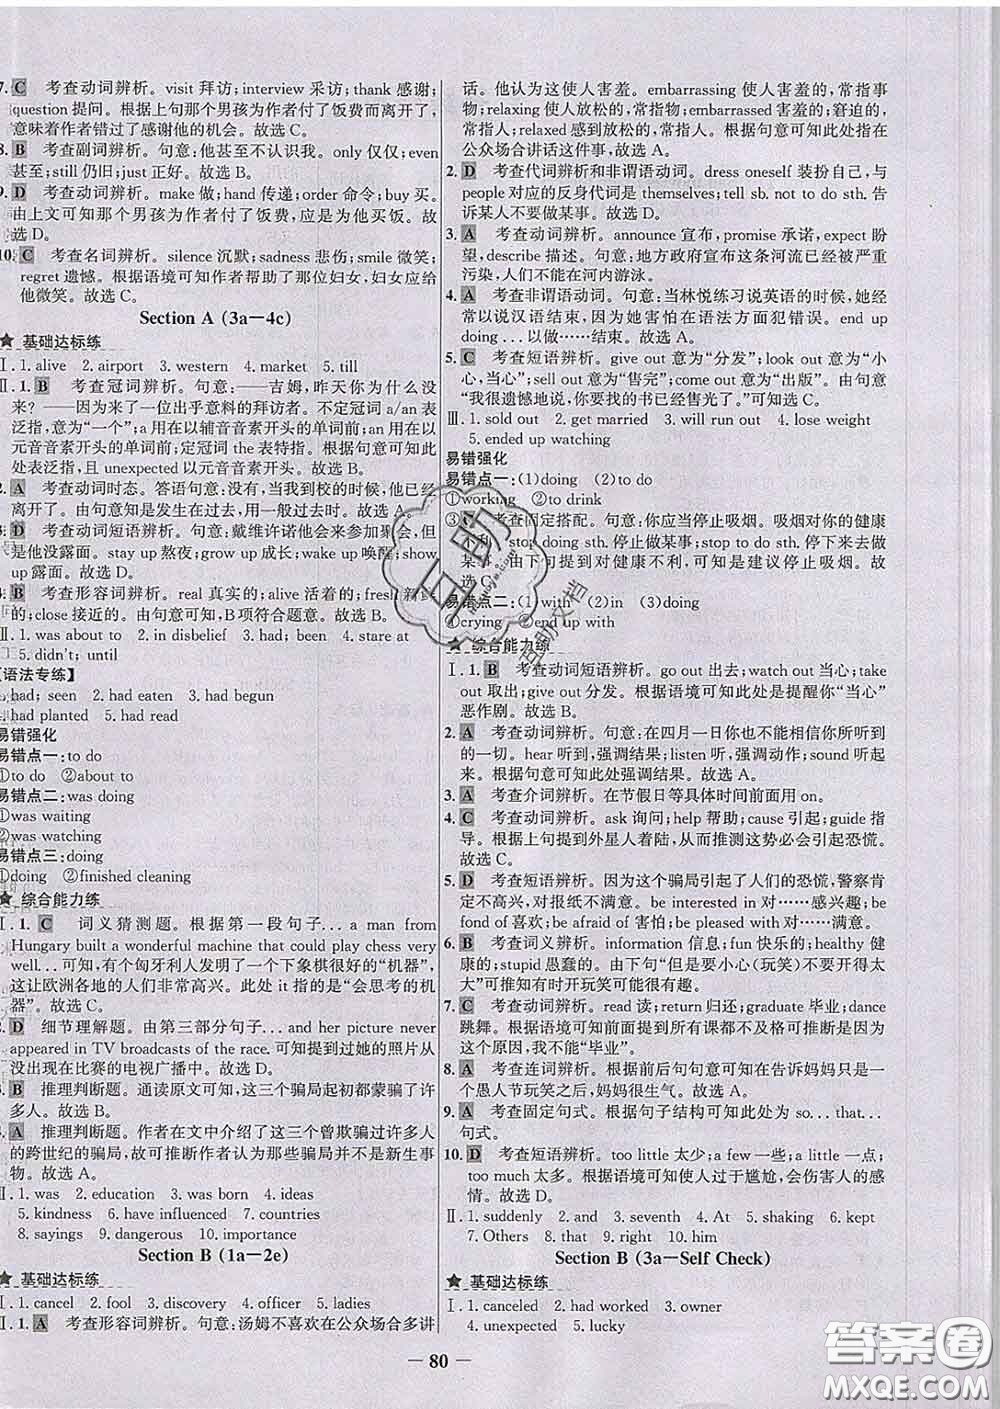 7. C 考查动词辨析。visit 拜访;interview 采访;thank 感谢;
question 提问。根据上句那个男孩为作者付了饭费而离开了,
意味着作者错过了感谢他的机会。故选 C。
8. B 考查副词辨析。句意:他甚至不认识我。only 仅仅;even
甚至;still 仍旧;just 正好。故选 B。
9. D 考查动词辨析。make 做;hand 传递;order 命令;buy 买。
由上文可知那个男孩为作者付了饭费,应是为他买饭。故
选 D。
10. C 考查名词辨析。silence 沉默;sadness 悲伤;smile 微笑;
regret 遗憾。根据语境可知作者帮助了那位妇女,妇女应给
他微笑。故选 C。
Section A (3a—4c)
★ 基础达标练
Ⅰ. 1. alive 2. airport 3. western 4. market 5. till
Ⅱ. 1. B 考查冠词辨析。句意:——吉姆,昨天你为什么没
来? ——因为来了一位出乎意料的拜访者。不定冠词 a/an 表
泛指,意为“一个”;a 用在以辅音音素开头的单词前;an 用在以
元音音素开头的单词前;定冠词 the 表特指。根据句意可知
此处表泛指,且 unexpected 以元音音素开头。故选 B。
2. A 考查动词时态。答语句意:没有,当我到校的时候,他已经
离开了。由句意知是发生在过去,用一般过去时。故选 A。
3. D 考查动词短语辨析。句意:戴维许诺他会来参加聚会,但
是他没露面。stay up 熬夜;grow up 成长;wake up 唤醒;show
up 露面。故选 D。
4. B 考查形容词辨析。real 真实的;alive 活着的;fresh 新鲜
的;close 接近的。由句意可知,B 项符合题意。故选 B。
Ⅲ. 1. was about to 2. in disbelief 3. had been 4. stare at
5. didn't; until
【语法专练】
1. had; seen 2. had eaten 3. had begun
4. had planted 5. had read
易错强化
易错点一:to do
①to do ②about to
易错点二:was doing
①was waiting
②was watching
易错点三:doing
①doing ②finished cleaning
★ 综合能力练
Ⅰ. 1. C 词义猜测题。根据第一段句子...a man from
Hungary built a wonderful machine that could play chess very
well...可知,有个匈牙利人发明了一个下象棋很好的“机器”,
这让欧洲各地的人们非常高兴。此处 it 指的是“会思考的机
器”。故选 C。
2. D 细节理解题。由第三部分句子...and her picture never
appeared in TV broadcasts of the race. 可知提到过她的照片从
没出现在比赛的电视广播中。故选 D。
3. B 推理判断题。通读原文可知:这三个骗局起初都蒙骗了许
多人。故选 B。
4. A 推理判断题。作者在文中介绍了这三个曾欺骗过许多人
的跨世纪的骗局,故可推断作者认为那些骗局并非新生事
物。故选 A。
Ⅱ. 1. was 2. education 3. was born 4. ideas
5. kindness 6. have influenced 7. countries
8. sayings 9. dangerous 10. importance
Section B (1a—2e)
★ 基础达标练
Ⅰ. 1. cancel 2. fool 3. discovery 4. officer 5. ladies
Ⅱ. 1. A 考查形容词辨析。句意:汤姆不喜欢在公众场合多讲
话。他认为这使人害羞。embarrassing 使人害羞的,常指事
物;relaxing 使人放松的,常指物;embarrassed 害羞的;窘迫的,
常指人;relaxed 感到放松的,常指人。根据句意可知此处指在
公众场合讲话这件事,故选 A。
2. D 考查代词辨析和非谓语动词。dress oneself 装扮自己,与
people 对应的反身代词是 themselves;tell sb. not to do sth. 告
诉某人不要做某事。故选 D。
3. A 考查动词辨析。announce 宣布,promise 承诺,expect 盼
望,describe 描述。句意:地方政府宣布这条河流已经被严重
污染,人们不能在河内游泳。
4. A 考查非谓语动词。句意:当林悦练习说英语的时候,她经
常以说汉语结束,因为她害怕在语法方面犯错误。end up
doing...以做……结束。故选 A。
5. C 考查短语辨析。give out 意为“分发”;look out 意为“小
心,当心”;sell out 意为“售完”;come out 意为“出版”。由句意
“我很遗憾地说,你要找的书已经售光了。”可知选 C。
Ⅲ. 1. sold out 2. get married 3. will run out 4. lose weight
5. ended up watching
易错强化
易错点一:(1)doing (2)to do
①working ②to drink
③C 考查固定搭配。句意:你应当停止吸烟。吸烟对你的健康
不利。stop doing sth. 停止做某事;stop to do sth. 停下来去做
某事。由下句提到对健康不利,可知是建议停止吸烟。故
选 C。
易错点二:(1)with (2)in (3)doing
①crying ②end up with
★ 综合能力练
Ⅰ. 1. B 考查动词短语辨析。go out 出去;watch out 当心;take
out 取出;give out 分发。根据语境可知此处是提醒你“当心”
恶作剧。故选 B。
2. A 考查动词辨析。句意:在四月一日你不可能相信你所听到
的一切。hear 听到,强调结果;listen 听,强调动作;sound 听起
来。根据句意可知此处强调结果。故选 A。
3. A 考查介词辨析。在节假日等具体时间前面用 on。
4. C 考查动词辨析。ask 询问;help 帮助;cause 引起;guide 指
导。根据上句提到外星人着陆,从而推测这势必会引起恐慌。
故选 C。
5. D 考查短语辨析。因为这个骗局引起了人们的恐慌,警察肯定
不高兴,对报纸不满意。be interested in 对……感兴趣;be
fond of 喜欢;be afraid of 害怕;be pleased with 对……满意。
6. B 考查词义辨析。information 信息;fun 快乐的;healthy 健
康的;stupid 愚蠢的。由下句“但是要小心(玩笑)不要开得太
大”可推知有时开玩笑可能很有趣。
7. C 考查动词辨析。read 读;return 归还;graduate 毕业;dance
跳舞。根据语境可知前面提到所有课都不及格可推断是因为
这个原因,我不能“毕业”。
8. A 考查连词辨析。根据前后句句意可知在告诉妈妈只是一
个愚人节玩笑之后,妈妈很生气。故选 A。
9. A 考查固定句式。根据句子结构可知此处为 so...that...
句式。
10. D 考查短语辨析。too little 太少;a few 一些;a little 一点;
too much 太多。根据语境可知使人过于尴尬,会伤害人的感
情。故选 D。
Ⅱ. 1. suddenly 2. and 3. seventh 4. At 5. shaking 6. kept
7. Others 8. that 9. right 10. him
Section B (3a—Self Check)
★ 基础达标练
Ⅰ. 1. canceled 2. had worked 3. owner
4. unexpected 5. lucky
— 80 —
互助
互助文档
答案圈
MXQE.COM